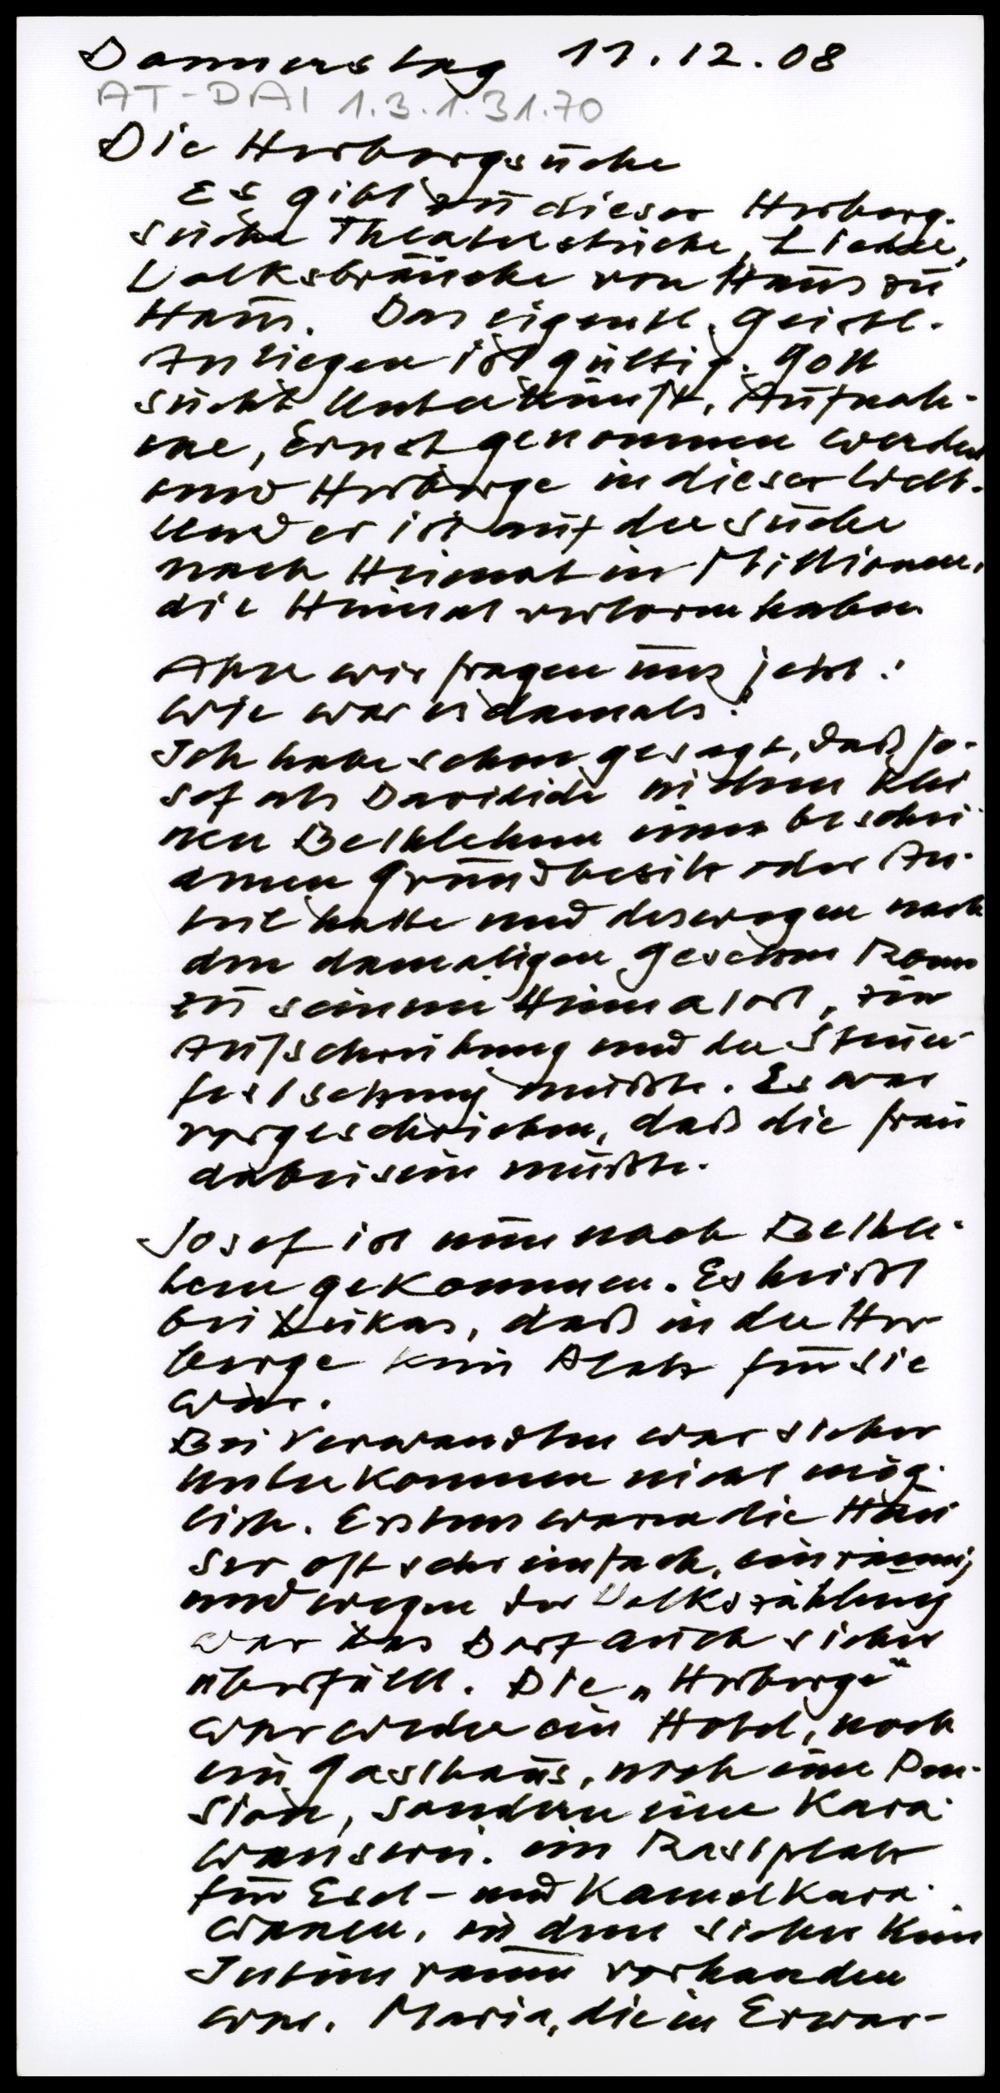 Donnerstag 11.12.08
AT-DAI 1.3.1.31.70
Die Herbergsuche
Es gibt zu dieser Herberg-
suche Theaterstücke, Lieder,
Volksbräuche von Haus zu
Haus. Das eigentl. geistl.
Anliegen ist gültig. Gott
sucht Unterkunft, Aufnah-
me, Ernstgenommen werden
und Herberge in dieser Welt.
Und er ist auf der Suche
nach Heimat in Millionen,
die Heimat verloren haben
Aber wir fragen uns jetzt:
Wie war es damals?
Ich habe schon gesagt, daß Jo-
sef als Davidide in dem klei
nen Bethlehem einen beschei
denen Grundbesitz oder An-
teil hatte und deswegen nach
den damaligen Gesetzen Roms
zu seinem Heimatort, zur
Aufschreibung und der Steuer
festsetzung mußte. Es war
vorgeschrieben, daß die Frau
dabeisein mußte.
Josef ist nun nach Bethle-
hem gekommen. Es heißt
bei Lukas, daß in der Her
berge kein Platz für sie
war.
Bei Verwandten war sicher
Unterkommen nicht mög-
lich. Erstens waren die Häu
ser oft sehr einfach, einräumig
und wegen der Volkszählung
war das Dorf auch sicher
überfüllt. Die „Herberge"
war weder ein Hotel, noch
ein Gasthaus, noch eine Pen-
sion, sondern eine Kara-
wanserei. ein Rastplatz
für Esel- und Kamelkara-
wanen, in dem sicher kein
Intimraum vorhanden
war. Maria, die in Erwar-